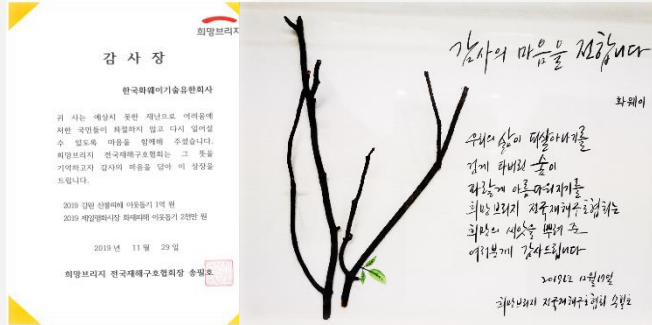 희망브리지
감 사 장
한국화웨이기술유한회사
귀 사는 예상치 못한 재난으로 어려움에
처한 국민들이 좌절하지 않고 다시 일어설
수 있도록 마음을 함께해 주셨습니다.
희망브리지 전국재해구호협회는 그 뜻을
기억하고자 감사의 마음을 담아 이 상장을
드립니다.
2019 강원 산불피해 이웃돕기 1억 원
2019 제일평화시장 화재피해 이웃돕기 2천만 원
2019 년 11 월 29 일
희망브리지 전국재해구호협회장 송필호
감사의 마음을 전합니다
화웨이
우리의 삶이 되살아나기를
검게 타버린 숲이
파랗게 아름다워지기를
희망브리지 전국재해구호협회는
희망의 씨앗을 뿌려 준
여러분께 감사드립니다
2019년 12월 17일
희망브리지 전국재해구호협회 송필호